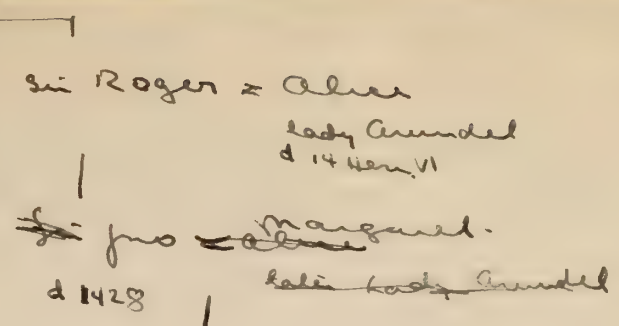 Sir Roger = Alice
Lady Arundel
d 14 Hen. VI
Sir Jno = Alice Margaret.
d 1428
later Lady Arundel